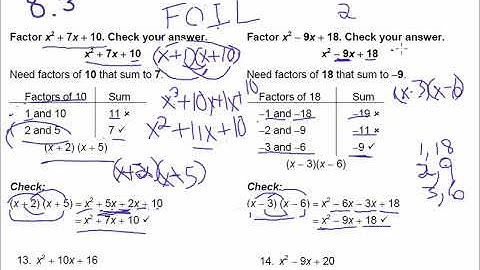 8.3
FOIL
2
Factor x² + 7x + 10. Check your answer.
x² + 7x + 10
(x+1)(x+10)
Need factors of 10 that sum to 7.
Factors of 10 Sum
1 and 10 11 ×
2 and 5 7 ✓
(x + 2)(x + 5)
x²+10x+1x+10
x²+11x+10
(x+2)(x+5)
Check:
(x + 2)(x + 5) = x² + 5x + 2x + 10
= x² + 7x + 10 ✓
13. x² + 10x + 16
Factor x² – 9x + 18. Check your answer.
x² – 9x + 18
Need factors of 18 that sum to –9.
Factors of 18 Sum
–1 and –18 –19 ×
–2 and –9 –11 ×
–3 and –6 –9 ✓
(x – 3)(x – 6)
(x-3)(x-6)
1,18
2,9
3,6
Check:
(x – 3)(x – 6) = x² – 6x – 3x + 18
= x² – 9x + 18 ✓
14. x² – 9x + 20